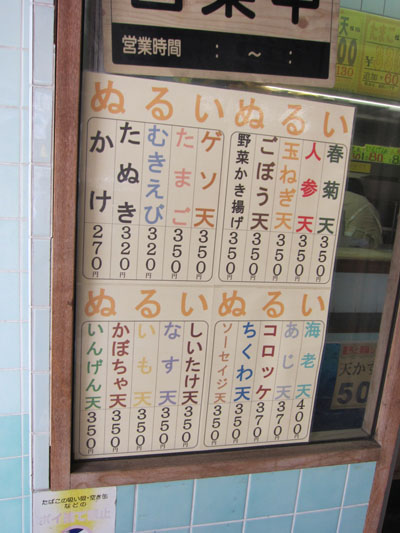 営業中
営業時間 : ~ :
ぬるい
ゲソ天 350円
たまご 350円
むきえび 320円
たぬき 320円
かけ 270円
ぬるい
春菊天 350円
人参天 350円
玉ねぎ天 350円
ごぼう天 350円
野菜かき揚げ 350円
ぬるい
しいたけ天 350円
なす天 350円
いも天 350円
かぼちゃ天 350円
いんげん天 350円
ぬるい
海老天 400円
あじ天 370円
コロッケ 370円
ちくわ天 350円
ソーセイジ天 350円
天かす
50
たばこの吸い殻・空き缶
などの
ポイ捨て禁止